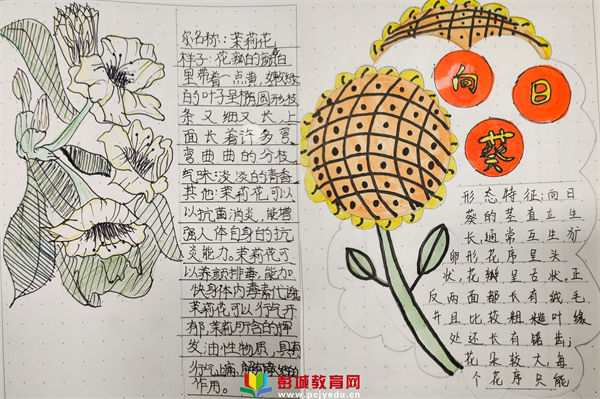 尔名称：茉莉花
样子：花瓣的颜色白
里带着一点黄，嫩绿
的叶子呈椭圆形，枝
条又细又长，上
面长着许多弯
弯曲曲的分枝
气味：淡淡的青香
其他：茉莉花可以
以抗菌消炎，能增
强人体自身的抗
炎能力。茉莉花可
以养颜排毒，能加
快身体内毒素代谢
茉莉花可以行气开
郁，茉莉所含的挥
发油性物质，具有
行气止痛，解郁
作用。
向
日
葵
形态特征：向日
葵的茎直立生
长，通常互生，
卵形，花序呈头
状，花瓣呈舌状，正
反两面都长有绒毛
并且比较粗糙叶缘
处还长有锯齿；
花朵较大，每
个花序只能
彭城教育网
www.pcjyedu.cn